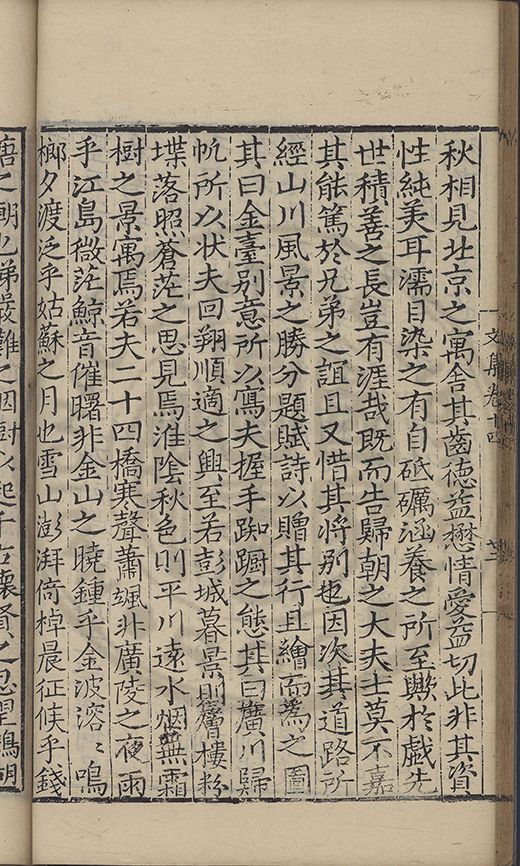 秋相見北京之寓舍其齒德益懋情愛益切此非其資
性純美耳濡目染之有自砥礪涵養之所至歟於戲先
世積善之長豈有涯哉既而告歸朝之大夫士莫不嘉
其能篤於兄弟之誼且又惜其将别也因次其道路所
經山川風景之勝分題賦詩以贈其行且繪而爲之圖
其曰金臺别意所以寫夫握手踟蹰之態其曰廣川歸
帆所以状夫回翔順適之興至若彭城暮景則層樓粉
堞落照蒼茫之思見焉淮隂秋色則平川遠水烟蕪霜
樹之景寓焉若夫二十四橋寒聲蕭颯非廣陵之夜雨
乎江島微茫鯨音催曙非金山之曉鍾乎金波溶溶鳴
榔夕渡泛乎姑蘇之月也雪山澎湃倚棹晨征候乎錢
文集卷十四